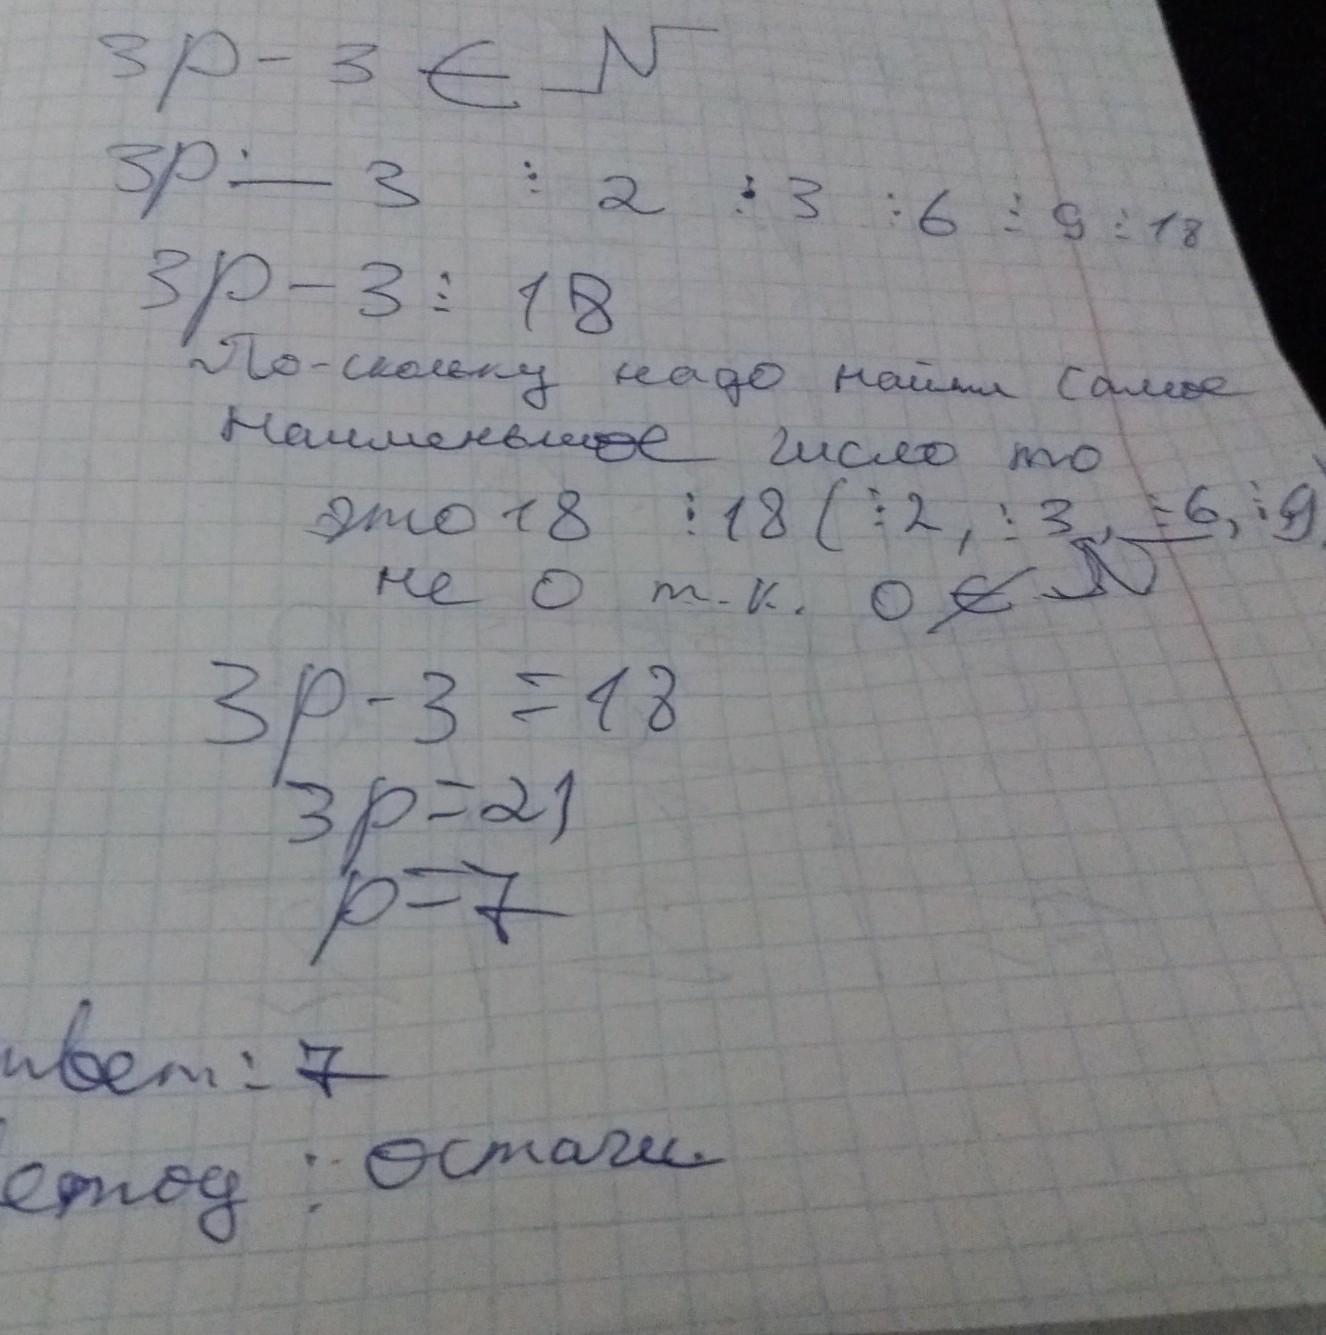 3p - 3 ∈ N
3p - 3 ⋮ 2 ⋮ 3 ⋮ 6 ⋮ 9 ⋮ 18
3p - 3 ⋮ 18
По-скольку надо найти самое
наименьшее число то
это 18 ⋮ 18 (⋮ 2, ⋮ 3, ⋮ 6, ⋮ 9)
не 0 т.к. 0 ∉ N
3p - 3 = 18
3p = 21
p = 7
твет: 7
етод : остачи